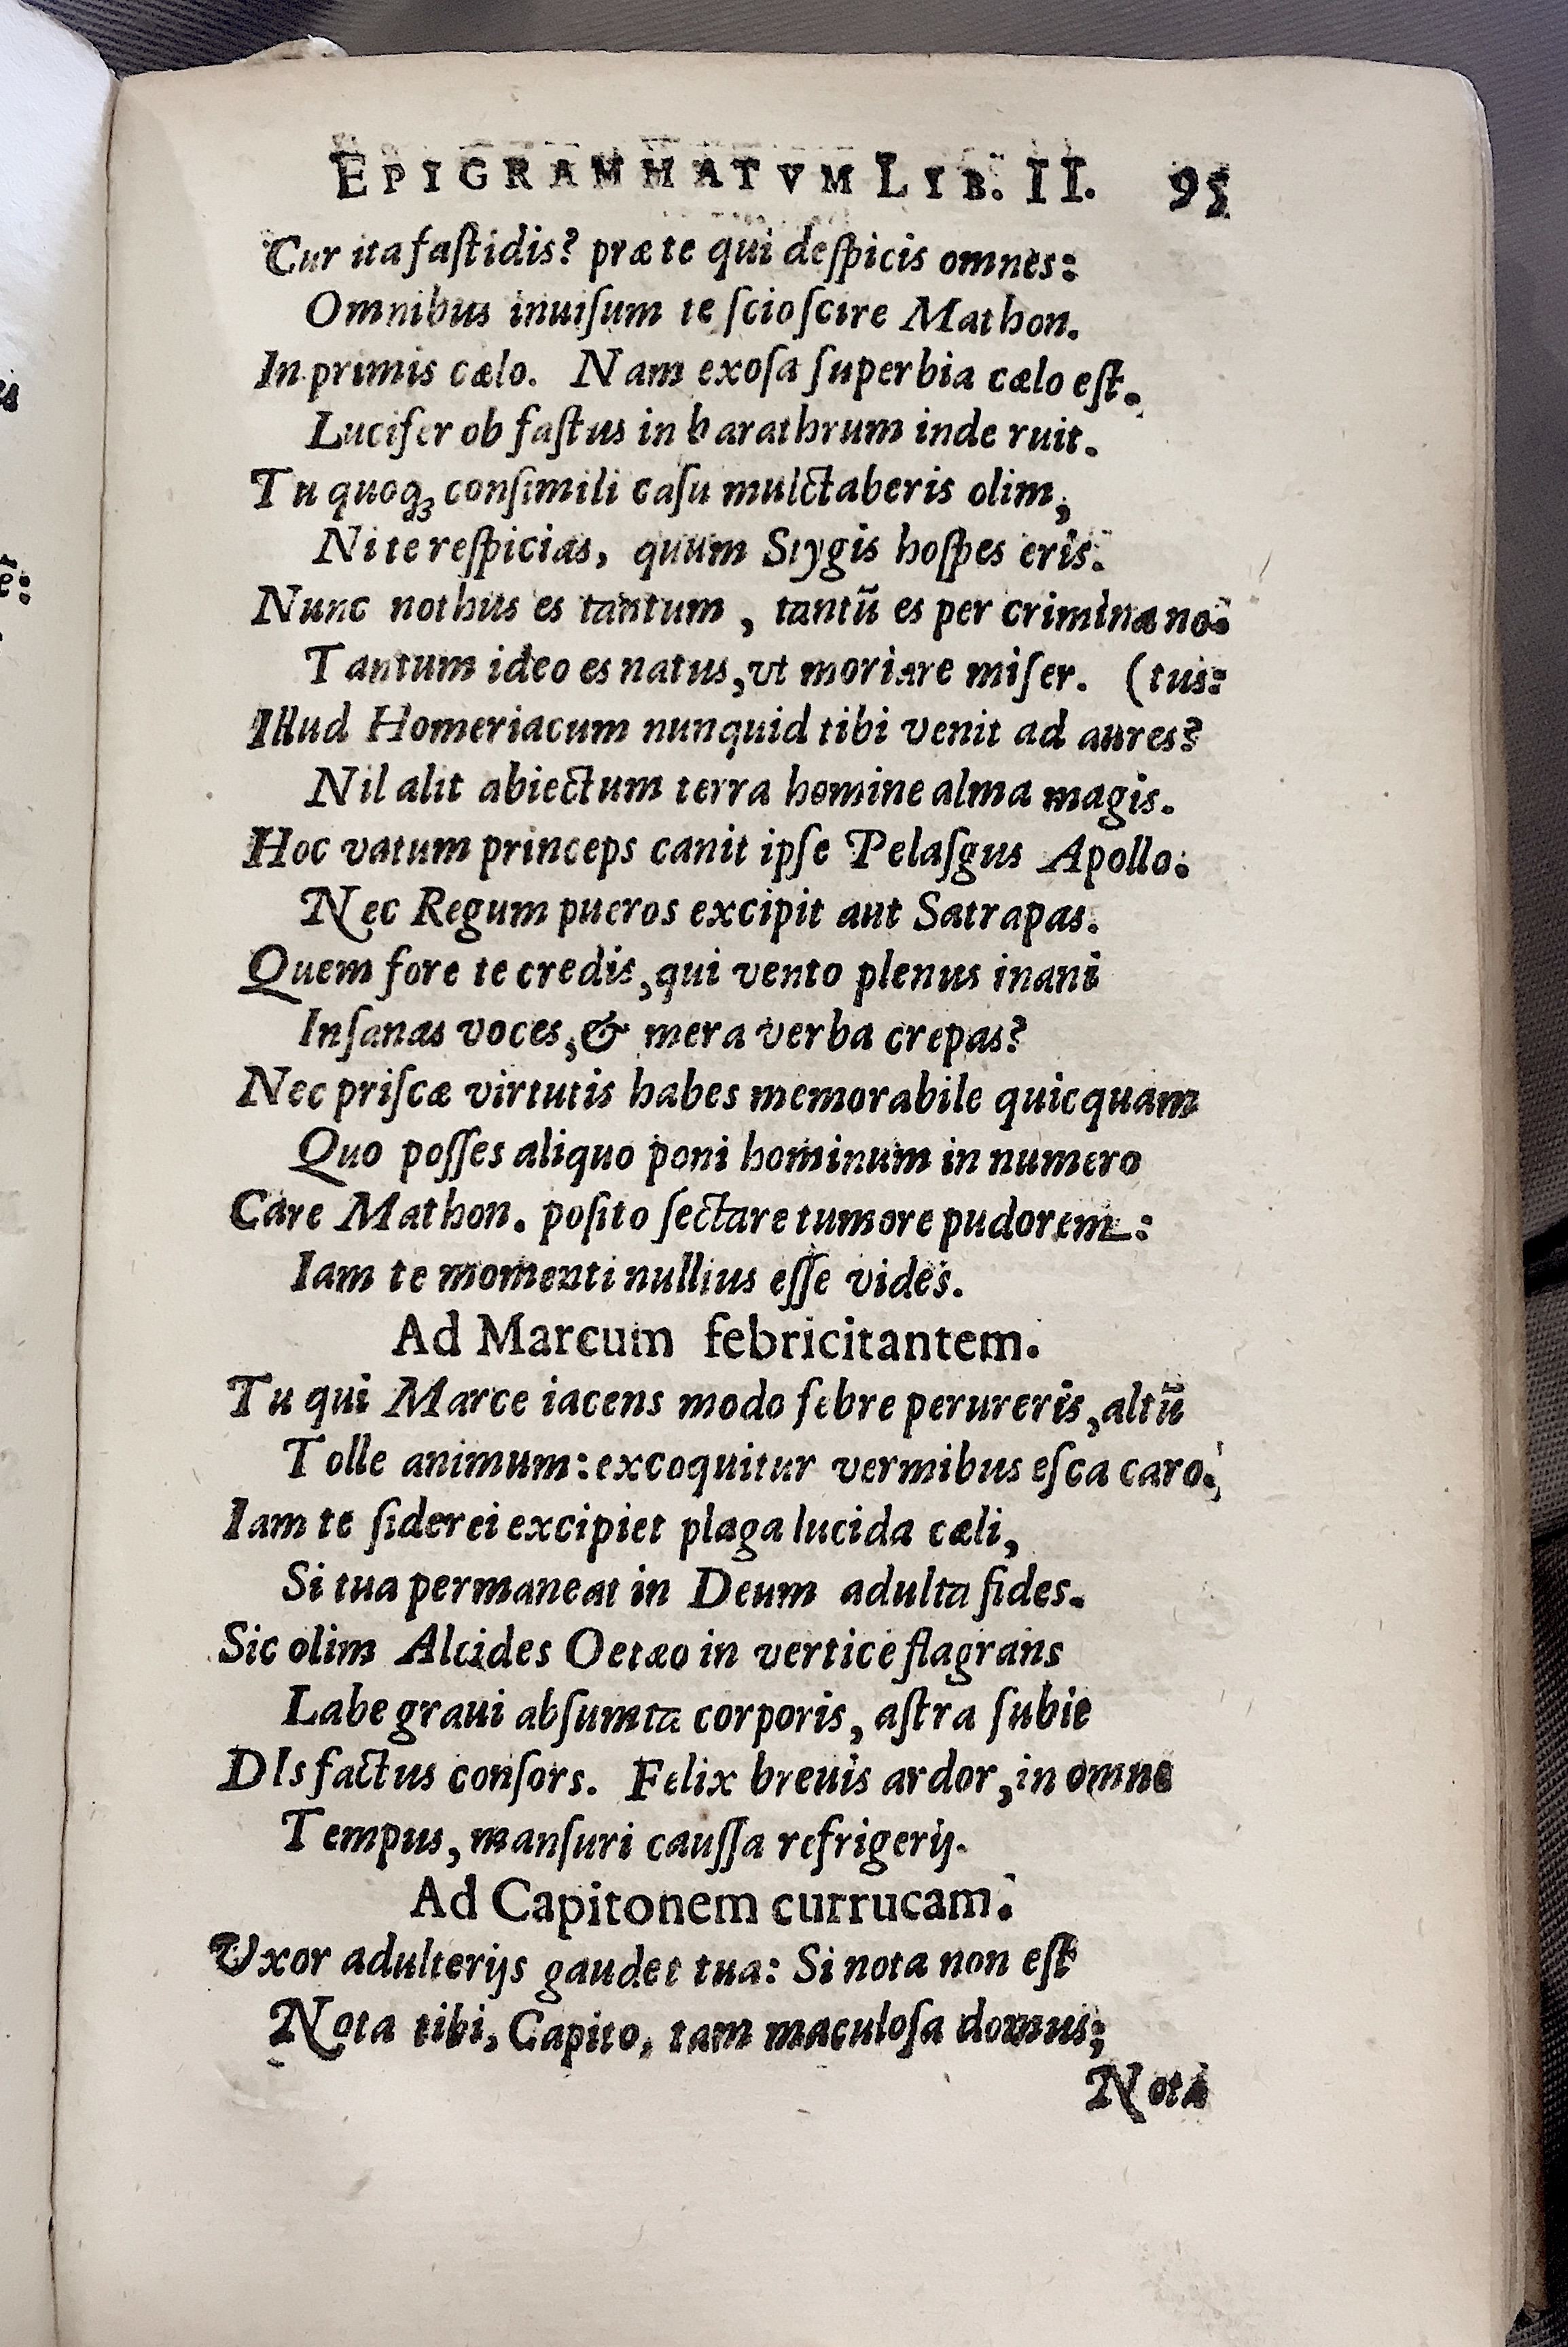 EPIGRAMMATVM LIB. II. 95
Cur ita faſtidis? præ te qui deſpicis omnes:
Omnibus inuiſum te ſcio ſcire Mathon.
In primis cælo. Nam exoſa ſuperbia cælo eſt.
Lucifer ob faſtus in barathrum inde ruit.
Tu quoqꝫ conſimili caſu mulctaberis olim,
Ni te reſpicias, quum Stygis hoſpes eris.
Nunc nothus es tantum, tantū es per crimina no-
Tantum ideo es natus, vt moriare miſer. (tus:
Illud Homeriacum nunquid tibi venit ad aures?
Nil alit abiectum terra homine alma magis.
Hoc vatum princeps canit ipſe Pelaſgus Apollo.
Nec Regum pueros excipit aut Satrapas.
Quem fore te credis, qui vento plenus inani
Inſanas voces, & mera verba crepas?
Nec priſcæ virtutis habes memorabile quicquam
Quo poſſes aliquo poni hominum in numero
Care Mathon. poſito ſectare tumore pudorem:
Iam te momenti nullius eſſe vides.
Ad Marcum febricitantem.
Tu qui Marce iacens modo febre perureris, altū
Tolle animum: excoquitur vermibus eſca caro.
Iam te ſiderei excipiet plaga lucida cæli,
Si tua permaneat in Deum adulta fides.
Sic olim Alcides Oetæo in vertice flagrans
Labe graui abſumta corporis, aſtra ſubit
DIs factus conſors. Felix breuis ardor, in omne
Tempus, manſuri cauſſa refrigerij.
Ad Capitonem currucam.
Vxor adulterijs gaudet tua: Si nota non eſt
Nota tibi, Capito, tam maculoſa domus;
Nota